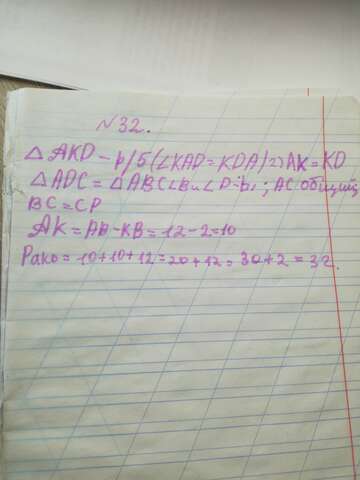 №32.
△AKD - р/б (∠KAD = KDA/2) AK = KD
△ADC = △ABC ∠B и ∠D ; AC общий
BC = CP
AK = AB - KB = 12 - 2 = 10
Pакд = 10 + 10 + 12 = 20 + 12 = 30 + 2 = 32.